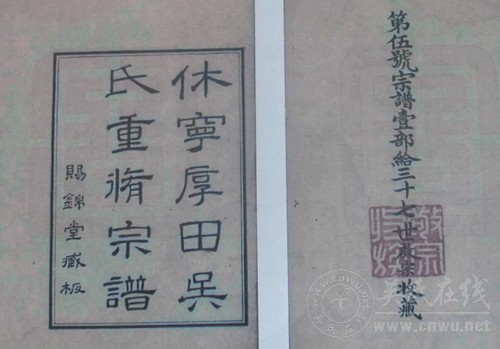 第伍號宗譜壹部給三十七世 收藏
休寧厚田吳
氏重脩宗譜
賜錦堂藏板
吴氏在线
www.cnwu.net